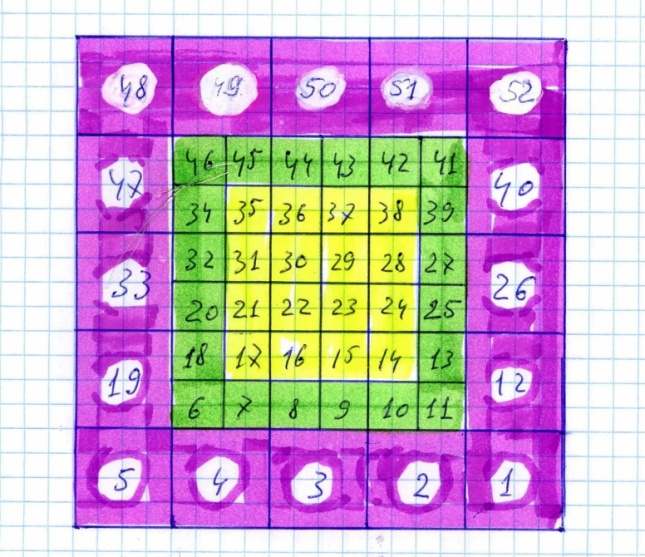 48 49 50 51 52
46 45 44 43 42 41
47 40
34 35 36 37 38 39
32 31 30 29 28 27
33 26
20 21 22 23 24 25
18 17 16 15 14 13
19 12
6 7 8 9 10 11
5 4 3 2 1